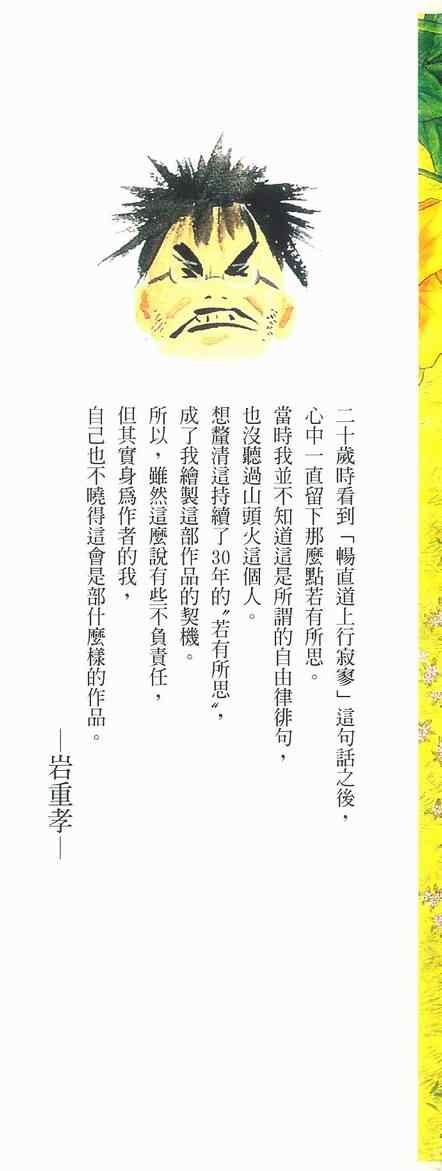 二十歲時看到「暢直道上行寂寥」這句話之後，
心中一直留下那麼點若有所思。
當時我並不知道這是所謂的自由律徘句，
也沒聽過山頭火這個人。
想釐清這持續了30年的〝若有所思〞，
成了我繪製這部作品的契機。
所以，雖然這麼說有些不負責任，
但其實身為作者的我，
自己也不曉得這會是部什麼樣的作品。
—岩重孝—